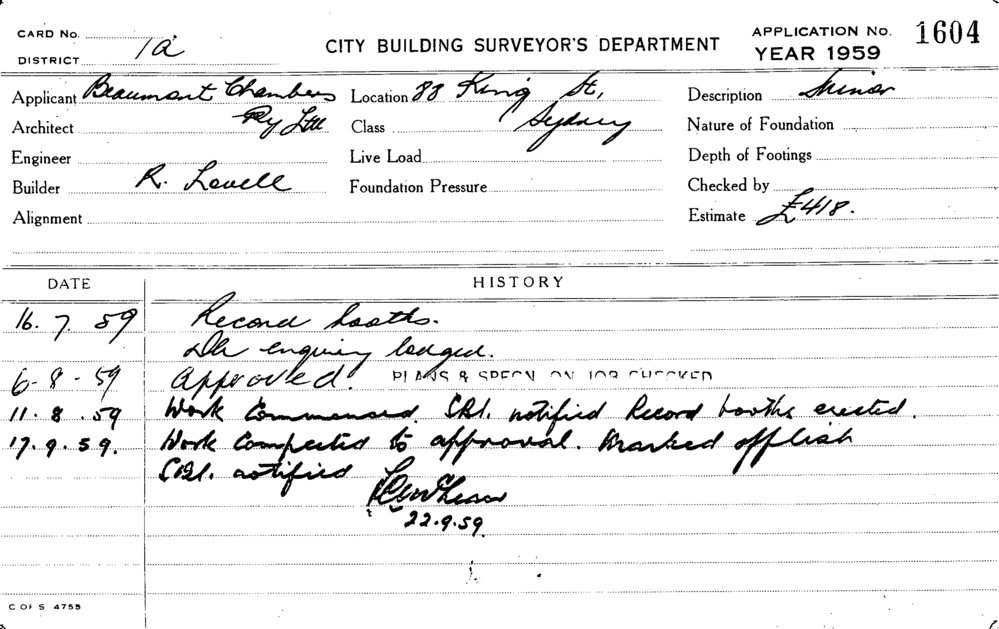 CARD No.
DISTRICT 1a
CITY BUILDING SURVEYOR'S DEPARTMENT
APPLICATION No. 1604
YEAR 1959
Applicant Beaumont Chambers Pty Ltd
Location 88 King St, Sydney
Description Minor
Architect
Class
Nature of Foundation
Engineer
Live Load
Depth of Footings
Builder R. Lovell
Foundation Pressure
Checked by
Alignment
Estimate £418.
DATE HISTORY
16. 7. 59 Record booths.
DA enquiry lodged.
6-8-59 Approved. PLANS & SPECN. ON JOB CHECKED
11. 8. 59 Work Commenced. CBI. notified Record booths erected.
17. 9. 59. Work Completed to approval. Marked off list
CBI. notified
22.9.59.
C OF S 4755